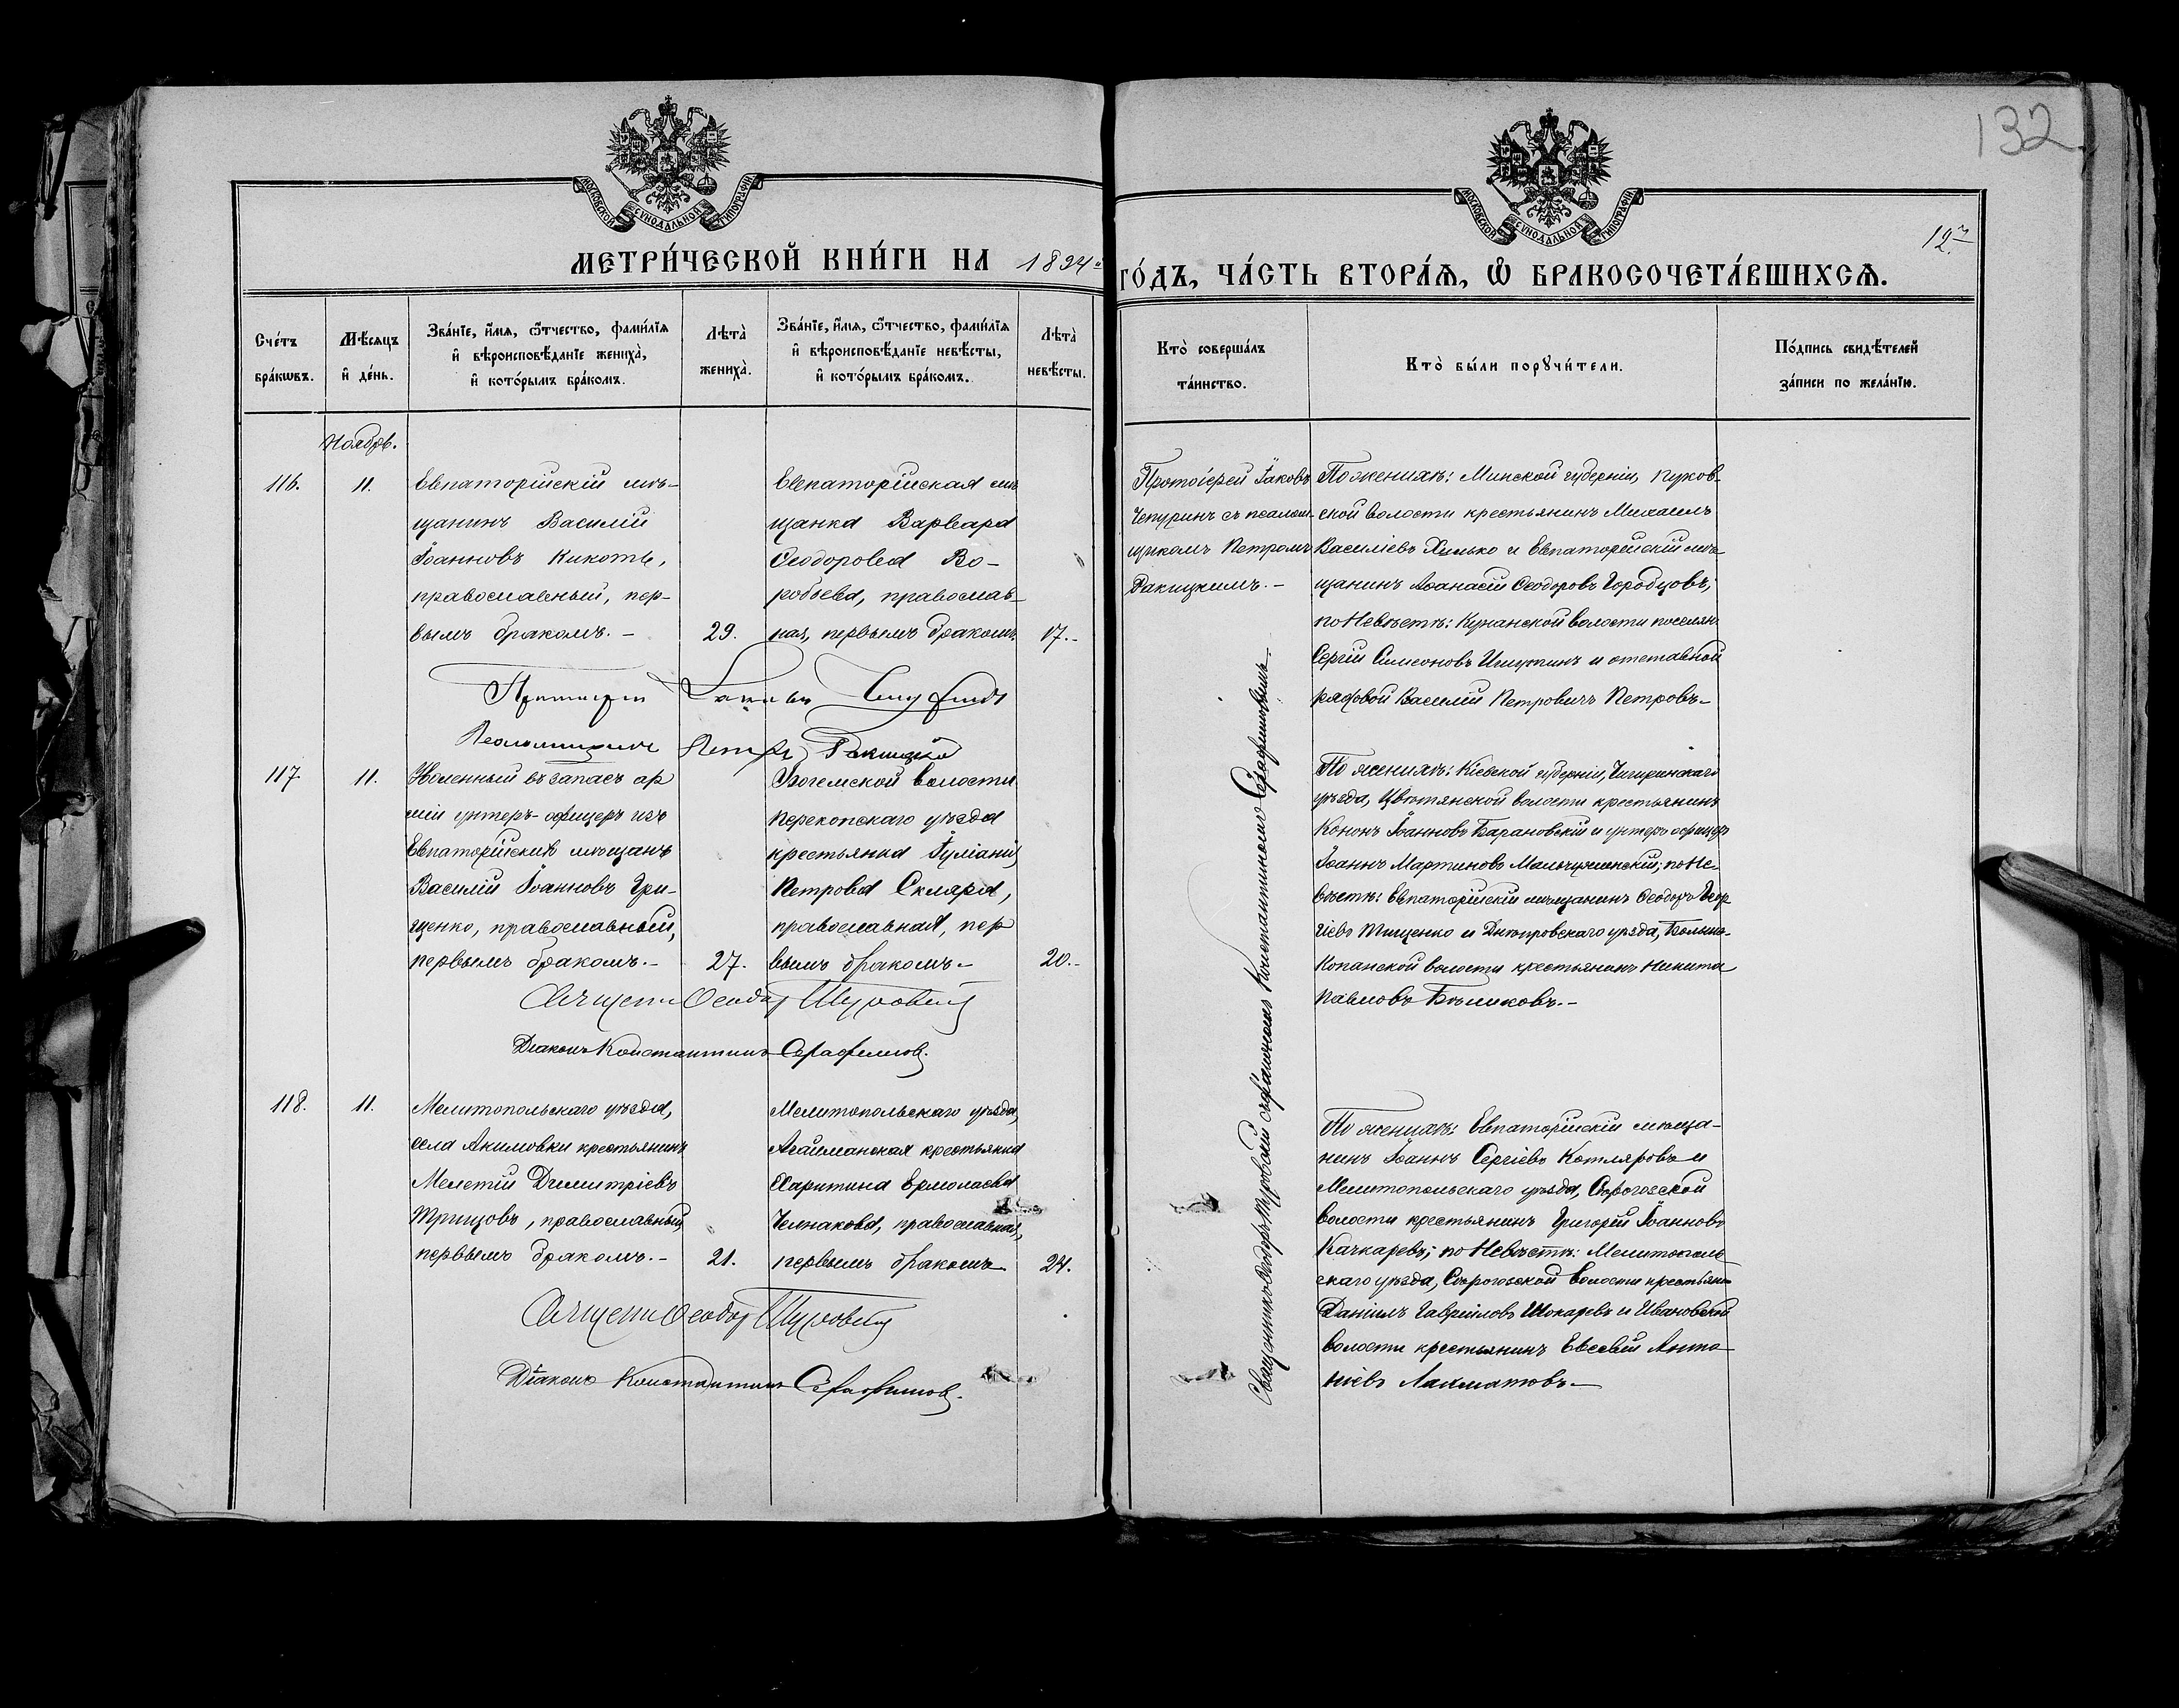 132
МОСКОВСКОЙ СѴНОДАЛЬНОЙ ТИПОГРАФІИ
МОСКОВСКОЙ СѴНОДАЛЬНОЙ ТИПОГРАФІИ
МЕТРИ́ЧЕСКОЙ КНИ́ГИ НА 1894
ГО́ДЪ, ЧА́СТЬ ВТОРА́Ѧ, Ѽ БРАКОСОЧЕТА́ВШИХСѦ.
Сче́тъ бра́кѡвъ.
Мѣ́сѧцъ и҆ де́нь.
Зва́нїе, и҆́мѧ, ѻ҆́тчество, фами́лїѧ
и҆ вѣроисповѣ́данїе жениха̀,
и҆ кото́рымъ бра́комъ.
Лѣта̀ жениха̀.
Зва́нїе, и҆́мѧ, ѻ҆́тчество, фами́лїѧ
и҆ вѣроисповѣ́данїе невѣ́сты,
и҆ кото́рымъ бра́комъ.
Лѣта̀ невѣ́сты.
Кто̀ соверша́лъ та́инство.
Кто̀ бы́ли порꙋчи́тели.
По́дпись свидѣ́телей за́писи по жела́нїю.
Ноябрь.
116.
11.
Евпаторійскій мѣ-
щанинъ Василій
Іоанновъ Кикоть,
православный, пер-
вымъ бракомъ.-
29.
Евпаторійская мѣ
щанка Варвара
Ѳеодорова Во-
робьева, православ-
ная, первымъ бракомъ.
17.-
Протоіерей Іаковъ
Чепуринъ съ псалом-
щикомъ Петромъ
Ракицкимъ.-
По женихѣ: Минской губерніи, Пухов-
ской волости крестьянинъ Михаилъ
Василіевъ Хилько и Евпаторійскій мѣ-
щанинъ Аѳанасій Ѳеодоровъ Городцовъ;
по невѣстѣ: Кунанской волости поселян.
Сергій Симеоновъ Ишутинъ и отставной
рядовой Василій Петровичъ Петровъ-
Протоіерей Іаковъ Чепуринъ
Псаломщикъ Петръ Ракицкій
117
11.
Уволенный въ запасъ ар
міи унтеръ-офицеръ изъ
Евпаторійскихъ мѣщанъ
Василій Іоанновъ Гри-
щенко, православный,
первымъ бракомъ.-
27.
Богемской волости
Перекопскаго уѣзда
крестьянка Іуліанія
Петрова Скляра,
православная, пер
вымъ бракомъ-
20.-
По женихѣ: Кіевской губерніи, Чигиринскаго
уѣзда, Цвѣтянской волости крестьянинъ
Кононъ Іоанновъ Барановскій и унтеръ офицеръ
Іоаннъ Мартиновъ по не-
вѣстѣ: Евпаторійскій мѣщанинъ Ѳеодоръ Геор
гіевъ Тищенко и Днѣпровскаго уѣзда, Больше-
Копанской волости крестьянинъ Никита
Павловъ Бѣликовъ.-
Священ Ѳеодоръ Туровскій
Діаконъ Константинъ Серафимовъ.
118.
11.
Мелитопольскаго уѣзда,
села Акимовки крестьянинъ
Мелетій Димитріевъ
Трищовъ, православный,
первымъ бракомъ.-
21.
Мелитопольскаго уѣзда,
Агайманская крестьянка
Харитина Ермолаева
Челнакова, православная,
первымъ бракомъ
24.
По женихѣ: Евпаторійскій мѣща-
нинъ Іоаннъ Сергіевъ Котляровъ и
Мелитопольскаго уѣзда, Сѣрогозской
волости крестьянинъ Григорій Іоанновъ
Качкаревъ; по невѣстѣ: Мелитополь
скаго уѣзда, Сѣрогозской волости крестьян
Даніилъ Гавріиловъ Шокаревъ и Ивановской
волости крестьянинъ Евсевій Анто
ніевъ Лахматовъ-
Священ Ѳеодоръ Туровскій
Діаконъ Константинъ Серафимовъ.
Священникъ Ѳеодоръ Туровскій съ діакономъ Константиномъ Серафимовымъ-